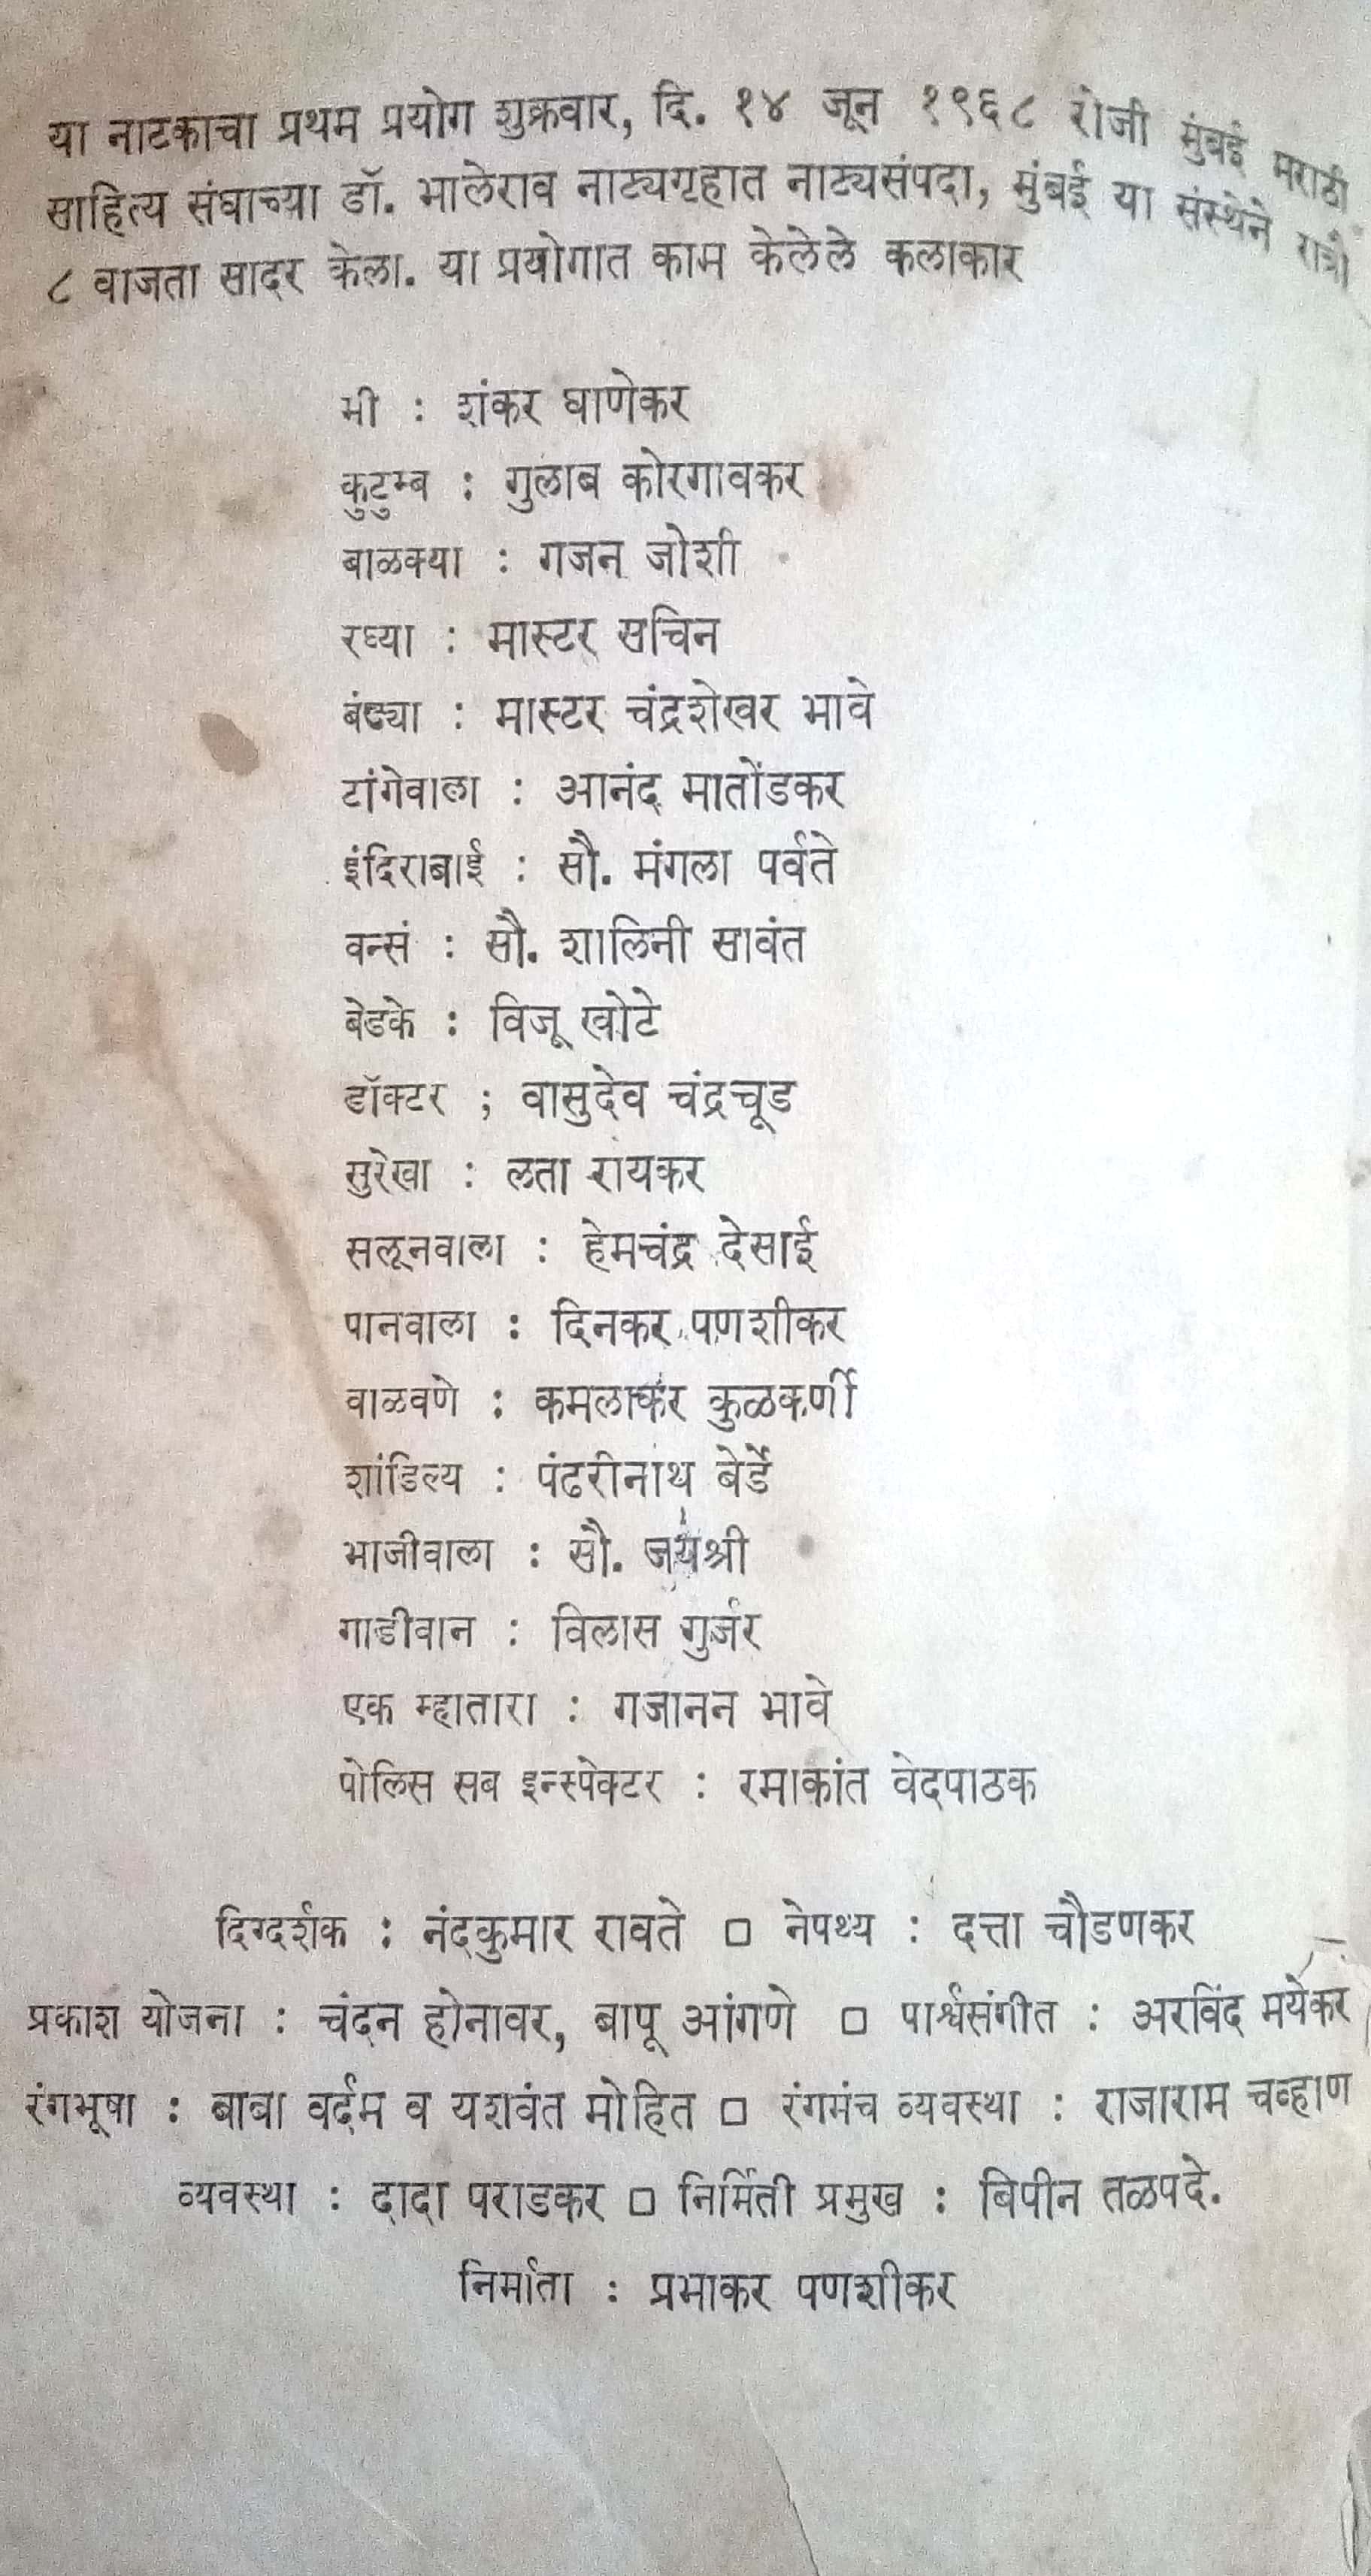 या नाटकाचा प्रथम प्रयोग शुक्रवार, दि. १४ जून १९६८ रोजी मुंबई मराठी
साहित्य संघाच्या डॉ. भालेराव नाट्यगृहात नाट्यसंपदा, मुंबई या संस्थेने रात्रौ
८ वाजता सादर केला. या प्रयोगात काम केलेले कलाकार
मी : शंकर घाणेकर
कुटुम्ब : गुलाब कोरगावकर
बाळक्या : गजन जोशी
रघ्या : मास्टर सचिन
बंड्या : मास्टर चंद्रशेखर भावे
टांगेवाला : आनंद मातोंडकर
इंदिराबाई : सौ. मंगला पर्वते
वन्सं : सौ. शालिनी सावंत
बेडके : विजू खोटे
डॉक्टर ; वासुदेव चंद्रचूड
सुरेखा : लता रायकर
सलूनवाला : हेमचंद्र देसाई
पानवाला : दिनकर पणशीकर
वाळवणे : कमलाकर कुळकर्णी
शांडिल्य : पंढरीनाथ बेर्डे
भाजीवाला : सौ. जयश्री
गाडीवान : विलास गुर्जर
एक म्हातारा : गजानन भावे
पोलिस सब इन्स्पेक्टर : रमाकांत वेदपाठक
दिग्दर्शक : नंदकुमार रावते □ नेपथ्य : दत्ता चौडणकर
प्रकाश योजना : चंदन होनावर, बापू आंगणे □ पार्श्वसंगीत : अरविंद मयेकर
रंगभूषा : बाबा वर्दम व यशवंत मोहित □ रंगमंच व्यवस्था : राजाराम चव्हाण
व्यवस्था : दादा पराडकर □ निर्मिती प्रमुख : बिपीन तळपदे.
निर्माता : प्रभाकर पणशीकर